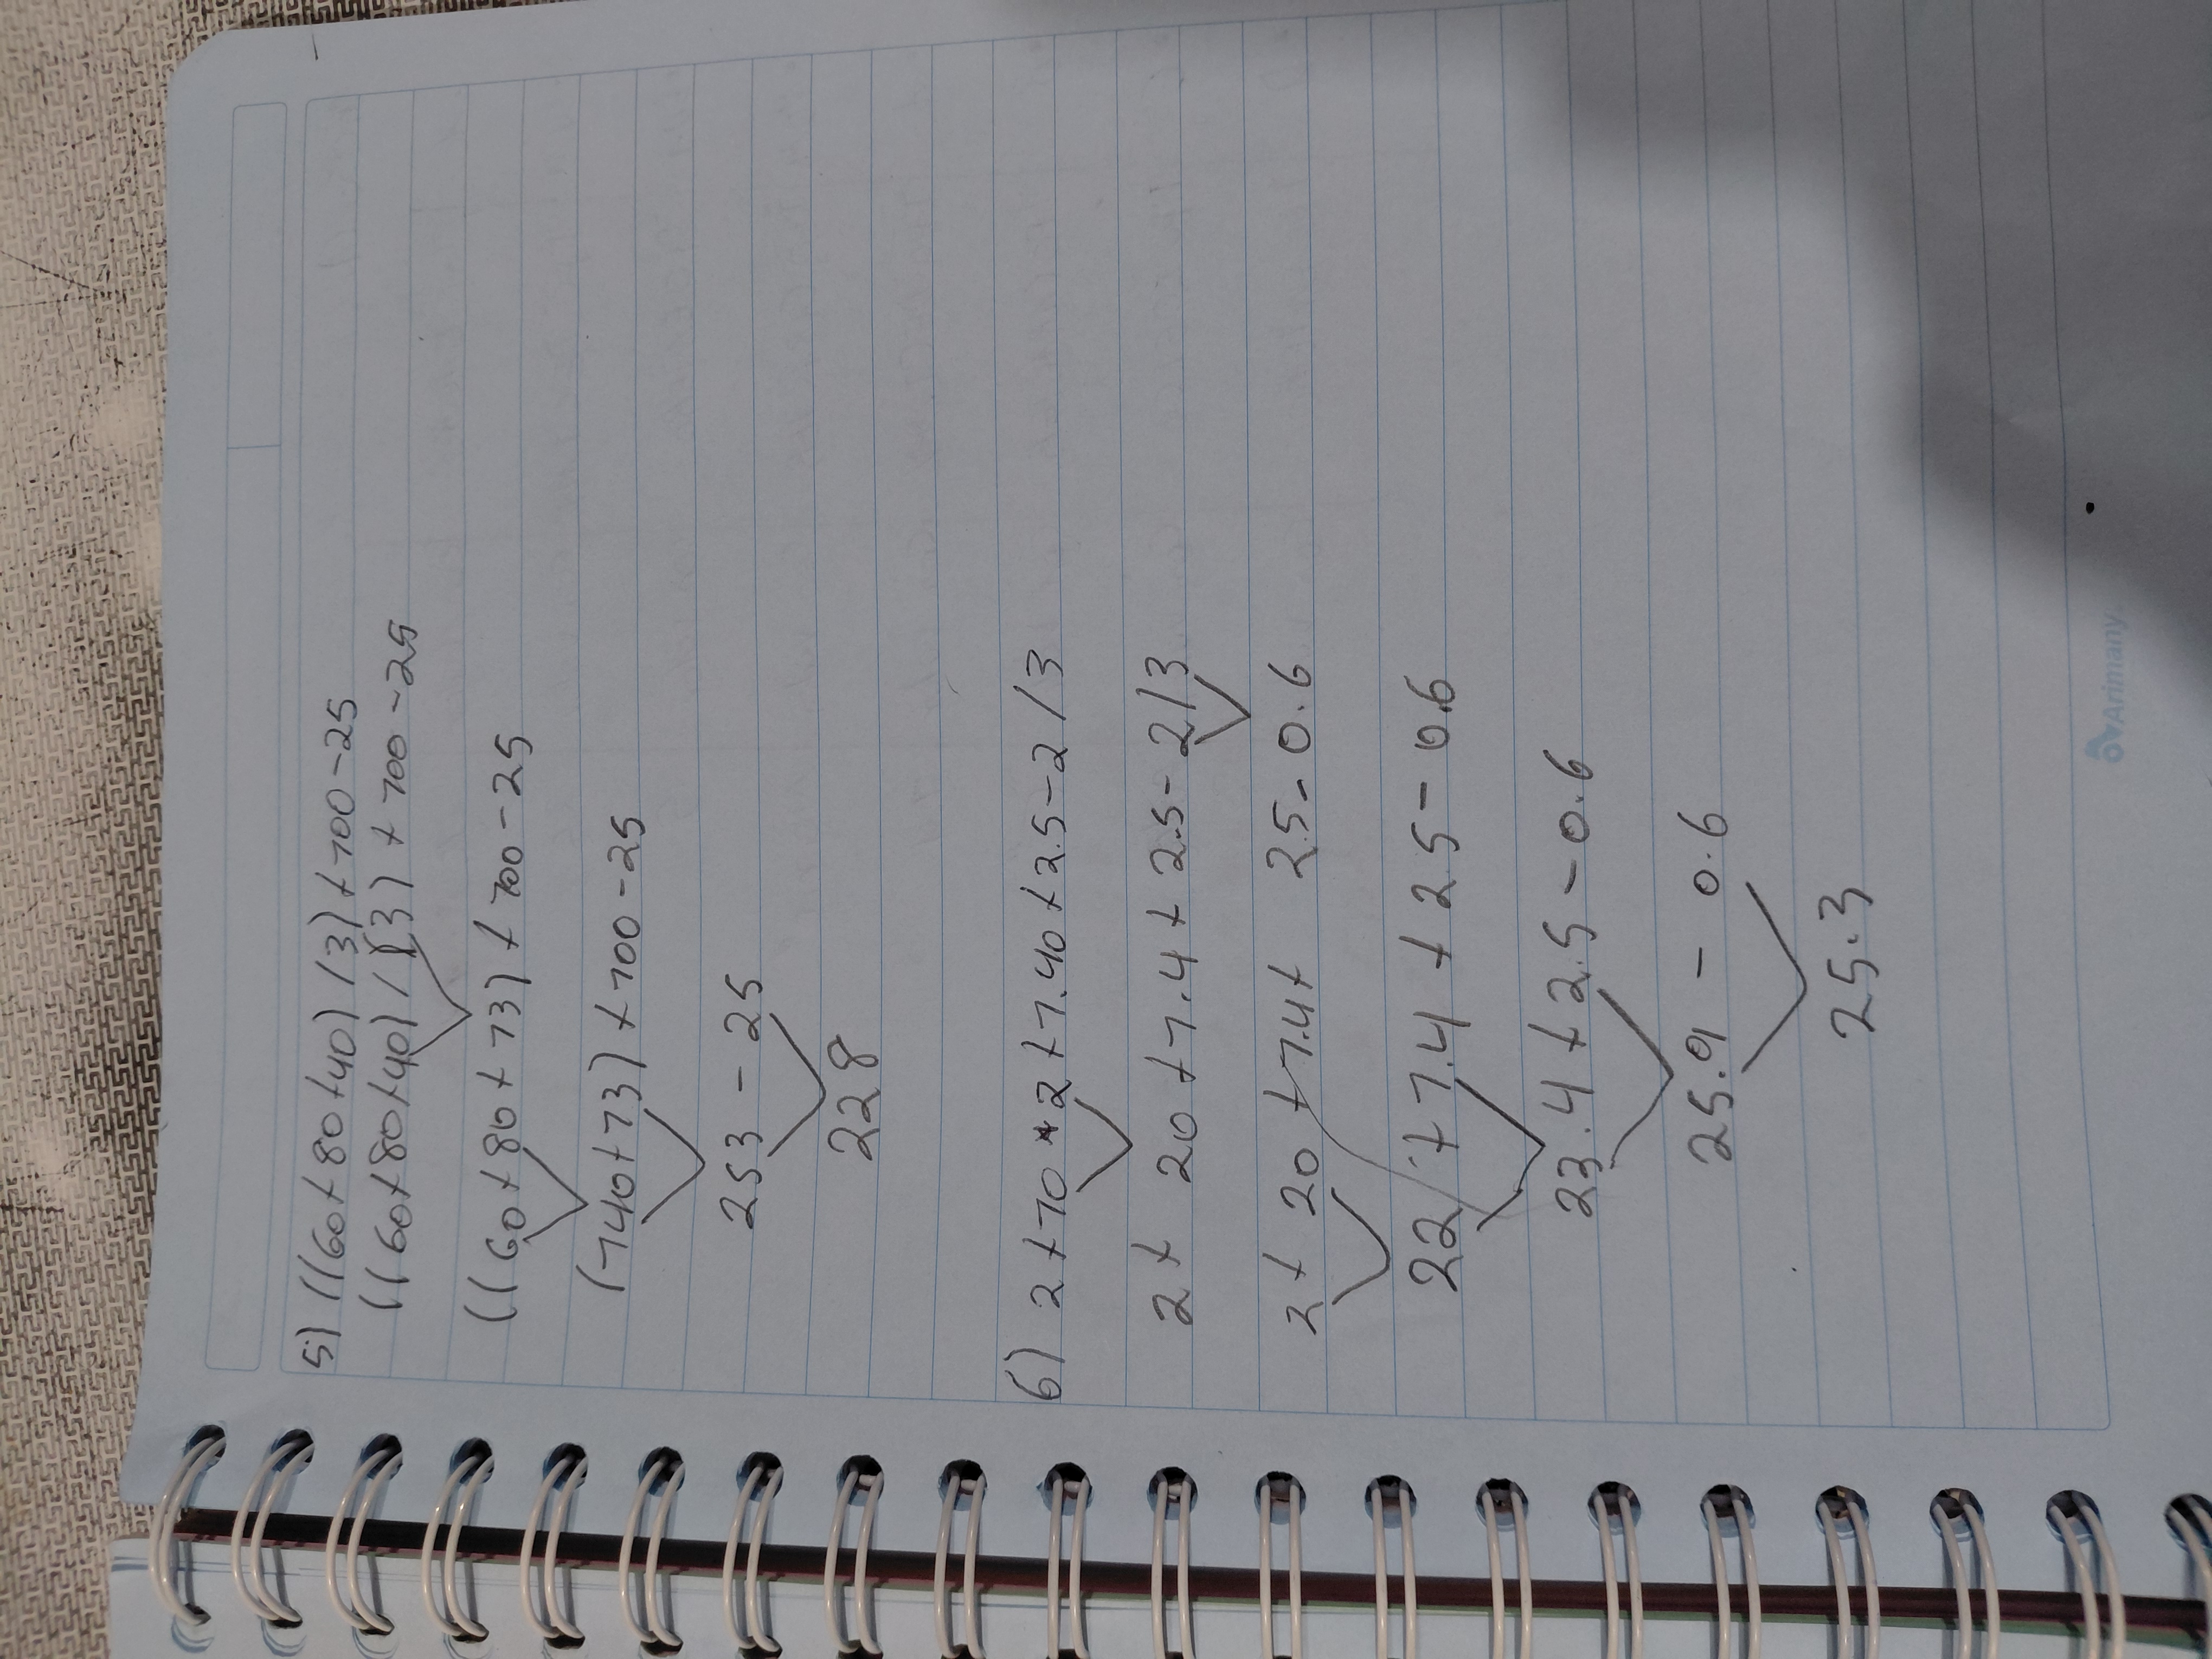 5) ((60+80+40)/3)+100-25
((60+80+40)/(3)+100-25
((60+80+13)+100-25
(140+13)+100-25
253-25
228
6) 2+10*2+1.40+2.5-2/3
2+ 20+1.4+2.5-2/3
2+ 20+1.4+ 2.5-0.6
22+1.4+2.5-0.6
23.4+2.5-0.6
25.9-0.6
25.3
Arimany